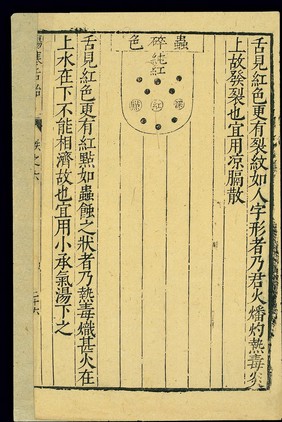 舌見紅色更有裂紋如人字形者乃君火燔灼熱毒炎
上故發裂也宜用凉膈散
蟲碎色
純紅
紅
舌見紅色更有紅點如蟲蝕之狀者乃熱毒熾甚火在
上水在下不能相濟故也宜用小承氣湯下之
傷寒舌
卷之六
二十六